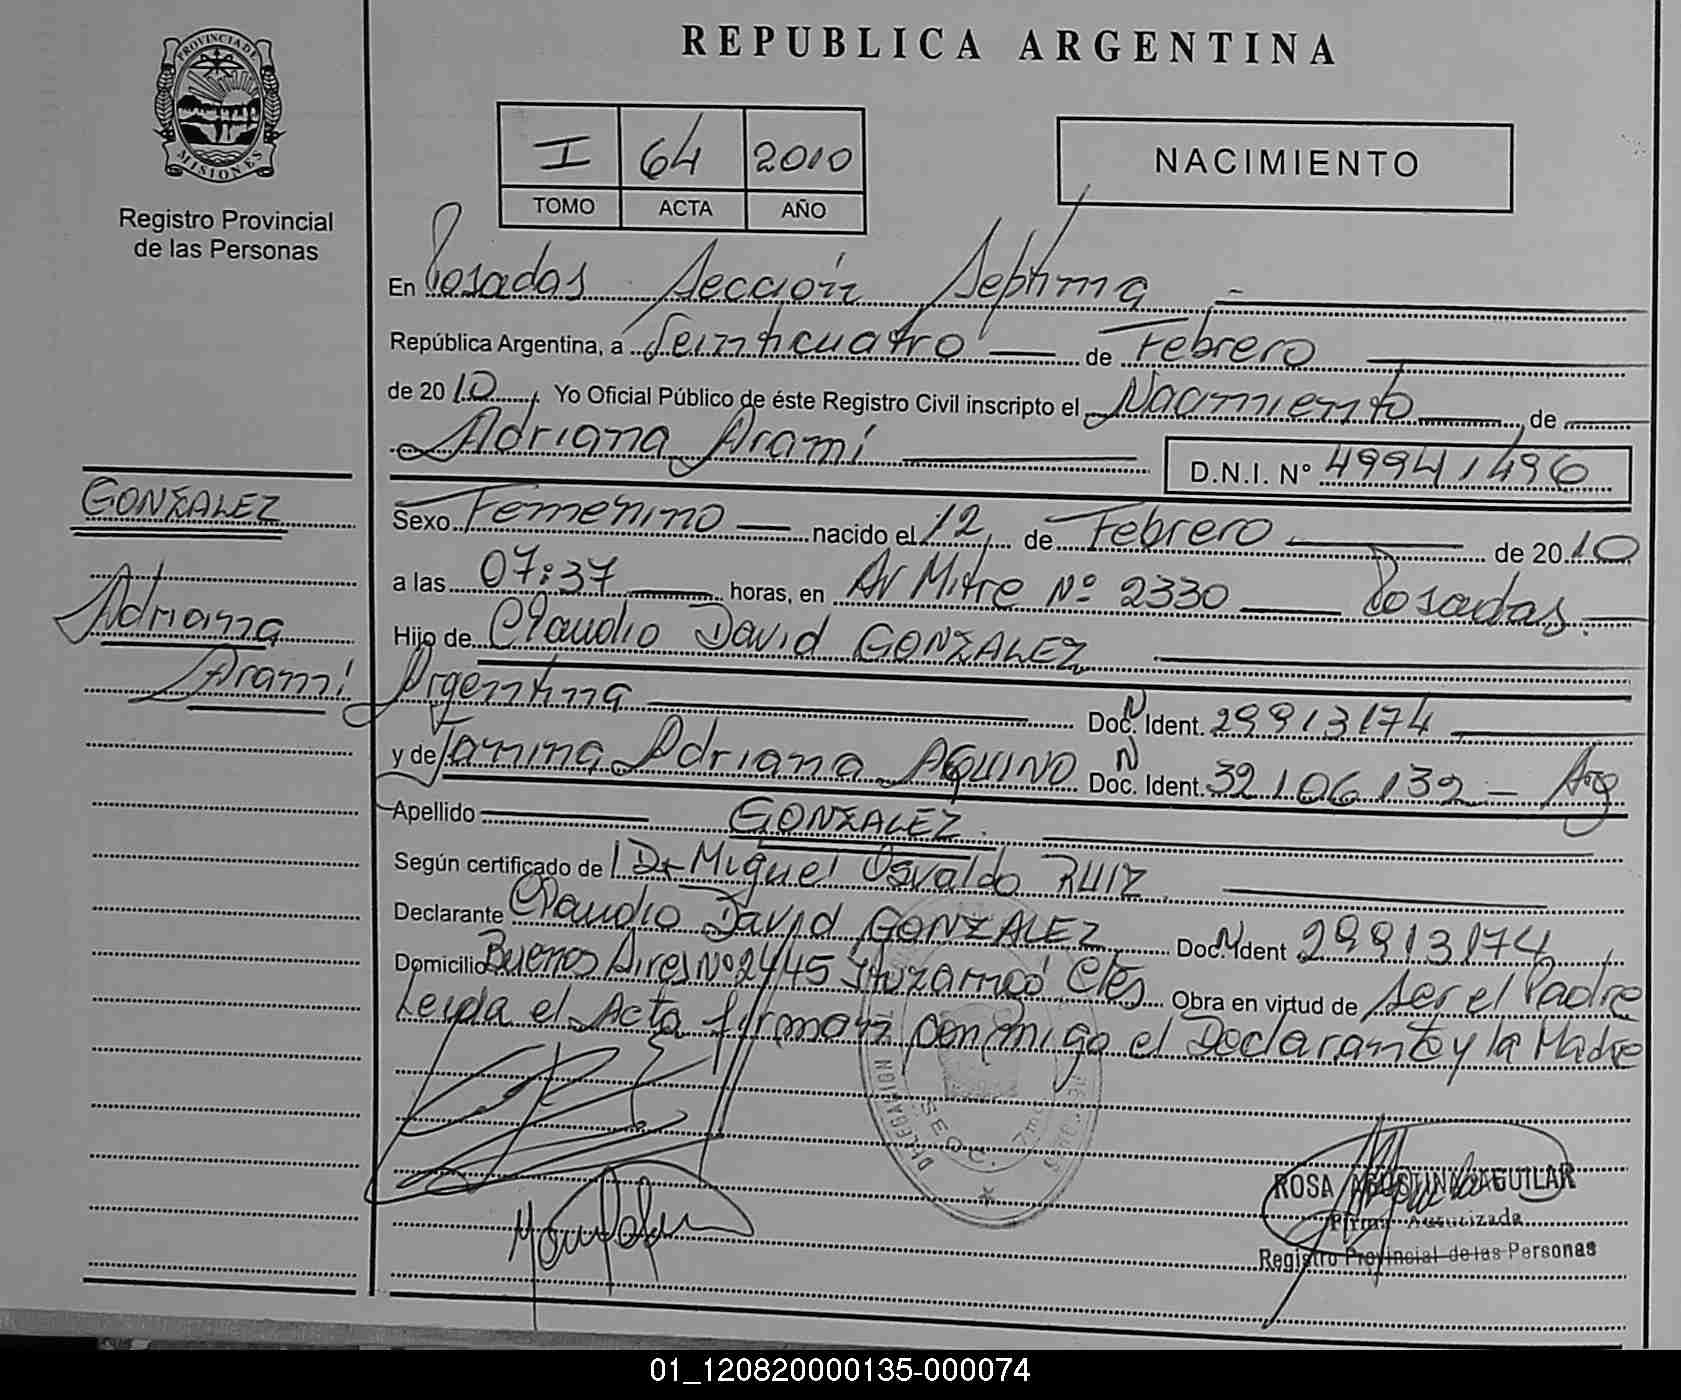 PROVINCIA DE
MISIONES
Registro Provincial
de las Personas
REPUBLICA ARGENTINA
I 64 2010
TOMO ACTA AÑO
NACIMIENTO
En Posadas Sección Septima
República Argentina, a Veinticuatro de Febrero
de 2010, Yo Oficial Público de éste Registro Civil inscripto el Nacimiento, de
Adriana Aramí
D.N.I. Nº 49941496
GONZALEZ
Adriana
Aramí
Sexo Femenino nacido el 12, de Febrero de 2010
a las 07:37 horas, en Av Mitre Nº 2330 Posadas.
Hijo de Claudio David GONZALEZ
Argentina Doc. N Ident. 29913174
y de Janina Adriana AQUINO Doc. N Ident. 32106132 - Arg
Apellido GONZALEZ.
Según certificado de l Dr Miguel Osvaldo RUIZ
Declarante Claudio David GONZALEZ Doc. N Ident 29913174
Domicilio Buenos Aires Nº 2445 Ituzaingó Ctes Obra en virtud de ser el Padre
Leida el Acta firman conmigo el Declarante y la Madre
DELEGACION
SECC. 7ma
ROSA AGOSTINA AGUILAR
Firma Autorizada
Registro Provincial de las Personas
01_120820000135-000074